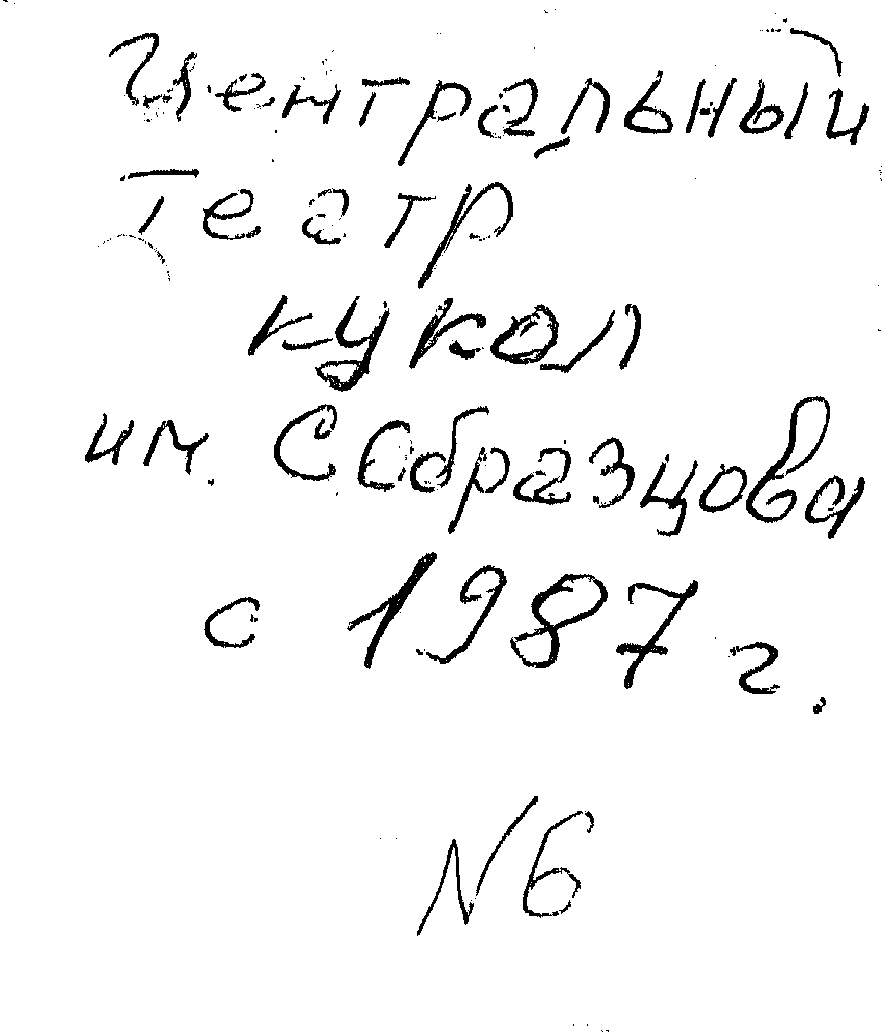 Центральный
Театр
кукол
им. С Образцова
с 1987 г.
N 6